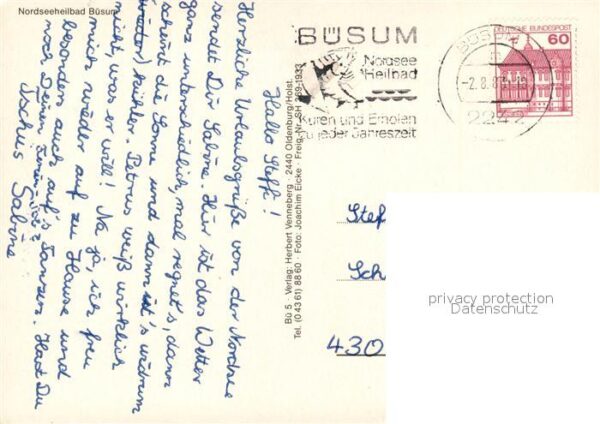 Nordseeheilbad Büsum
Hallo Steffi!
Herzliche Urlaubsgrüße von der Nordsee
sendet Dir Sabine. Hier ist das Wetter
ganz unterschiedlich, mal regnet's, dann
scheint die Sonne und dann ist's wiedrum
kühler. Petrus weiß wirklich
nicht, was er will! Na ja, ich freu
mich wieder auf zu Hause und
besonders auch auf's Tanzen. Hast Du
noch Deinen
Tschüs Sabine
Bü 5 · Verlag: Herbert Venneberg · 2440 Oldenburg/Holst.
Tel. (0 43 61) 88 60 · Foto: Joachim Eicke · Freig. Nr. SH 269-1933
BÜSUM
Nordsee
Heilbad
Kuren und Erholen
zu jeder Jahreszeit
BÜSUM
-2.8.8
2242
DEUTSCHE BUNDESPOST
60
Stef
Sch
430
privacy protection
Datenschutz